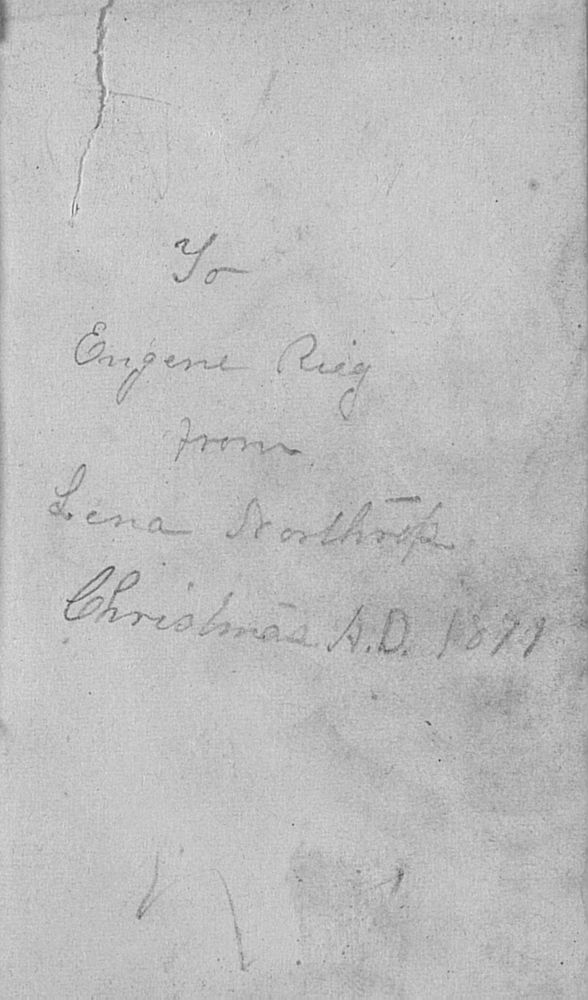 To
Eugene Rieg
from
Lena Northrop
Christmas A.D. 1879